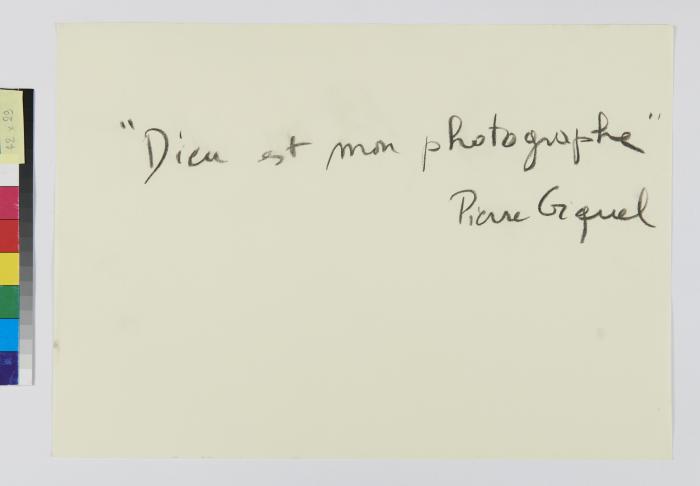 "Dieu est mon photographe"
Pierre Giquel
42 x 29